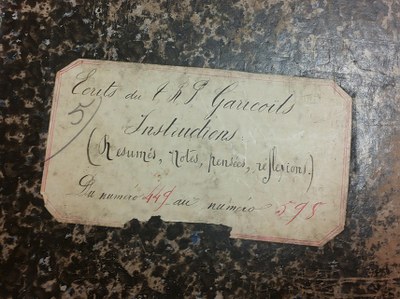 Ecrits du t. h. P. Garicoïts
5
Instructions
(Résumés, notes, pensées, réflexions.)
Du numéro 449 au numéro 595